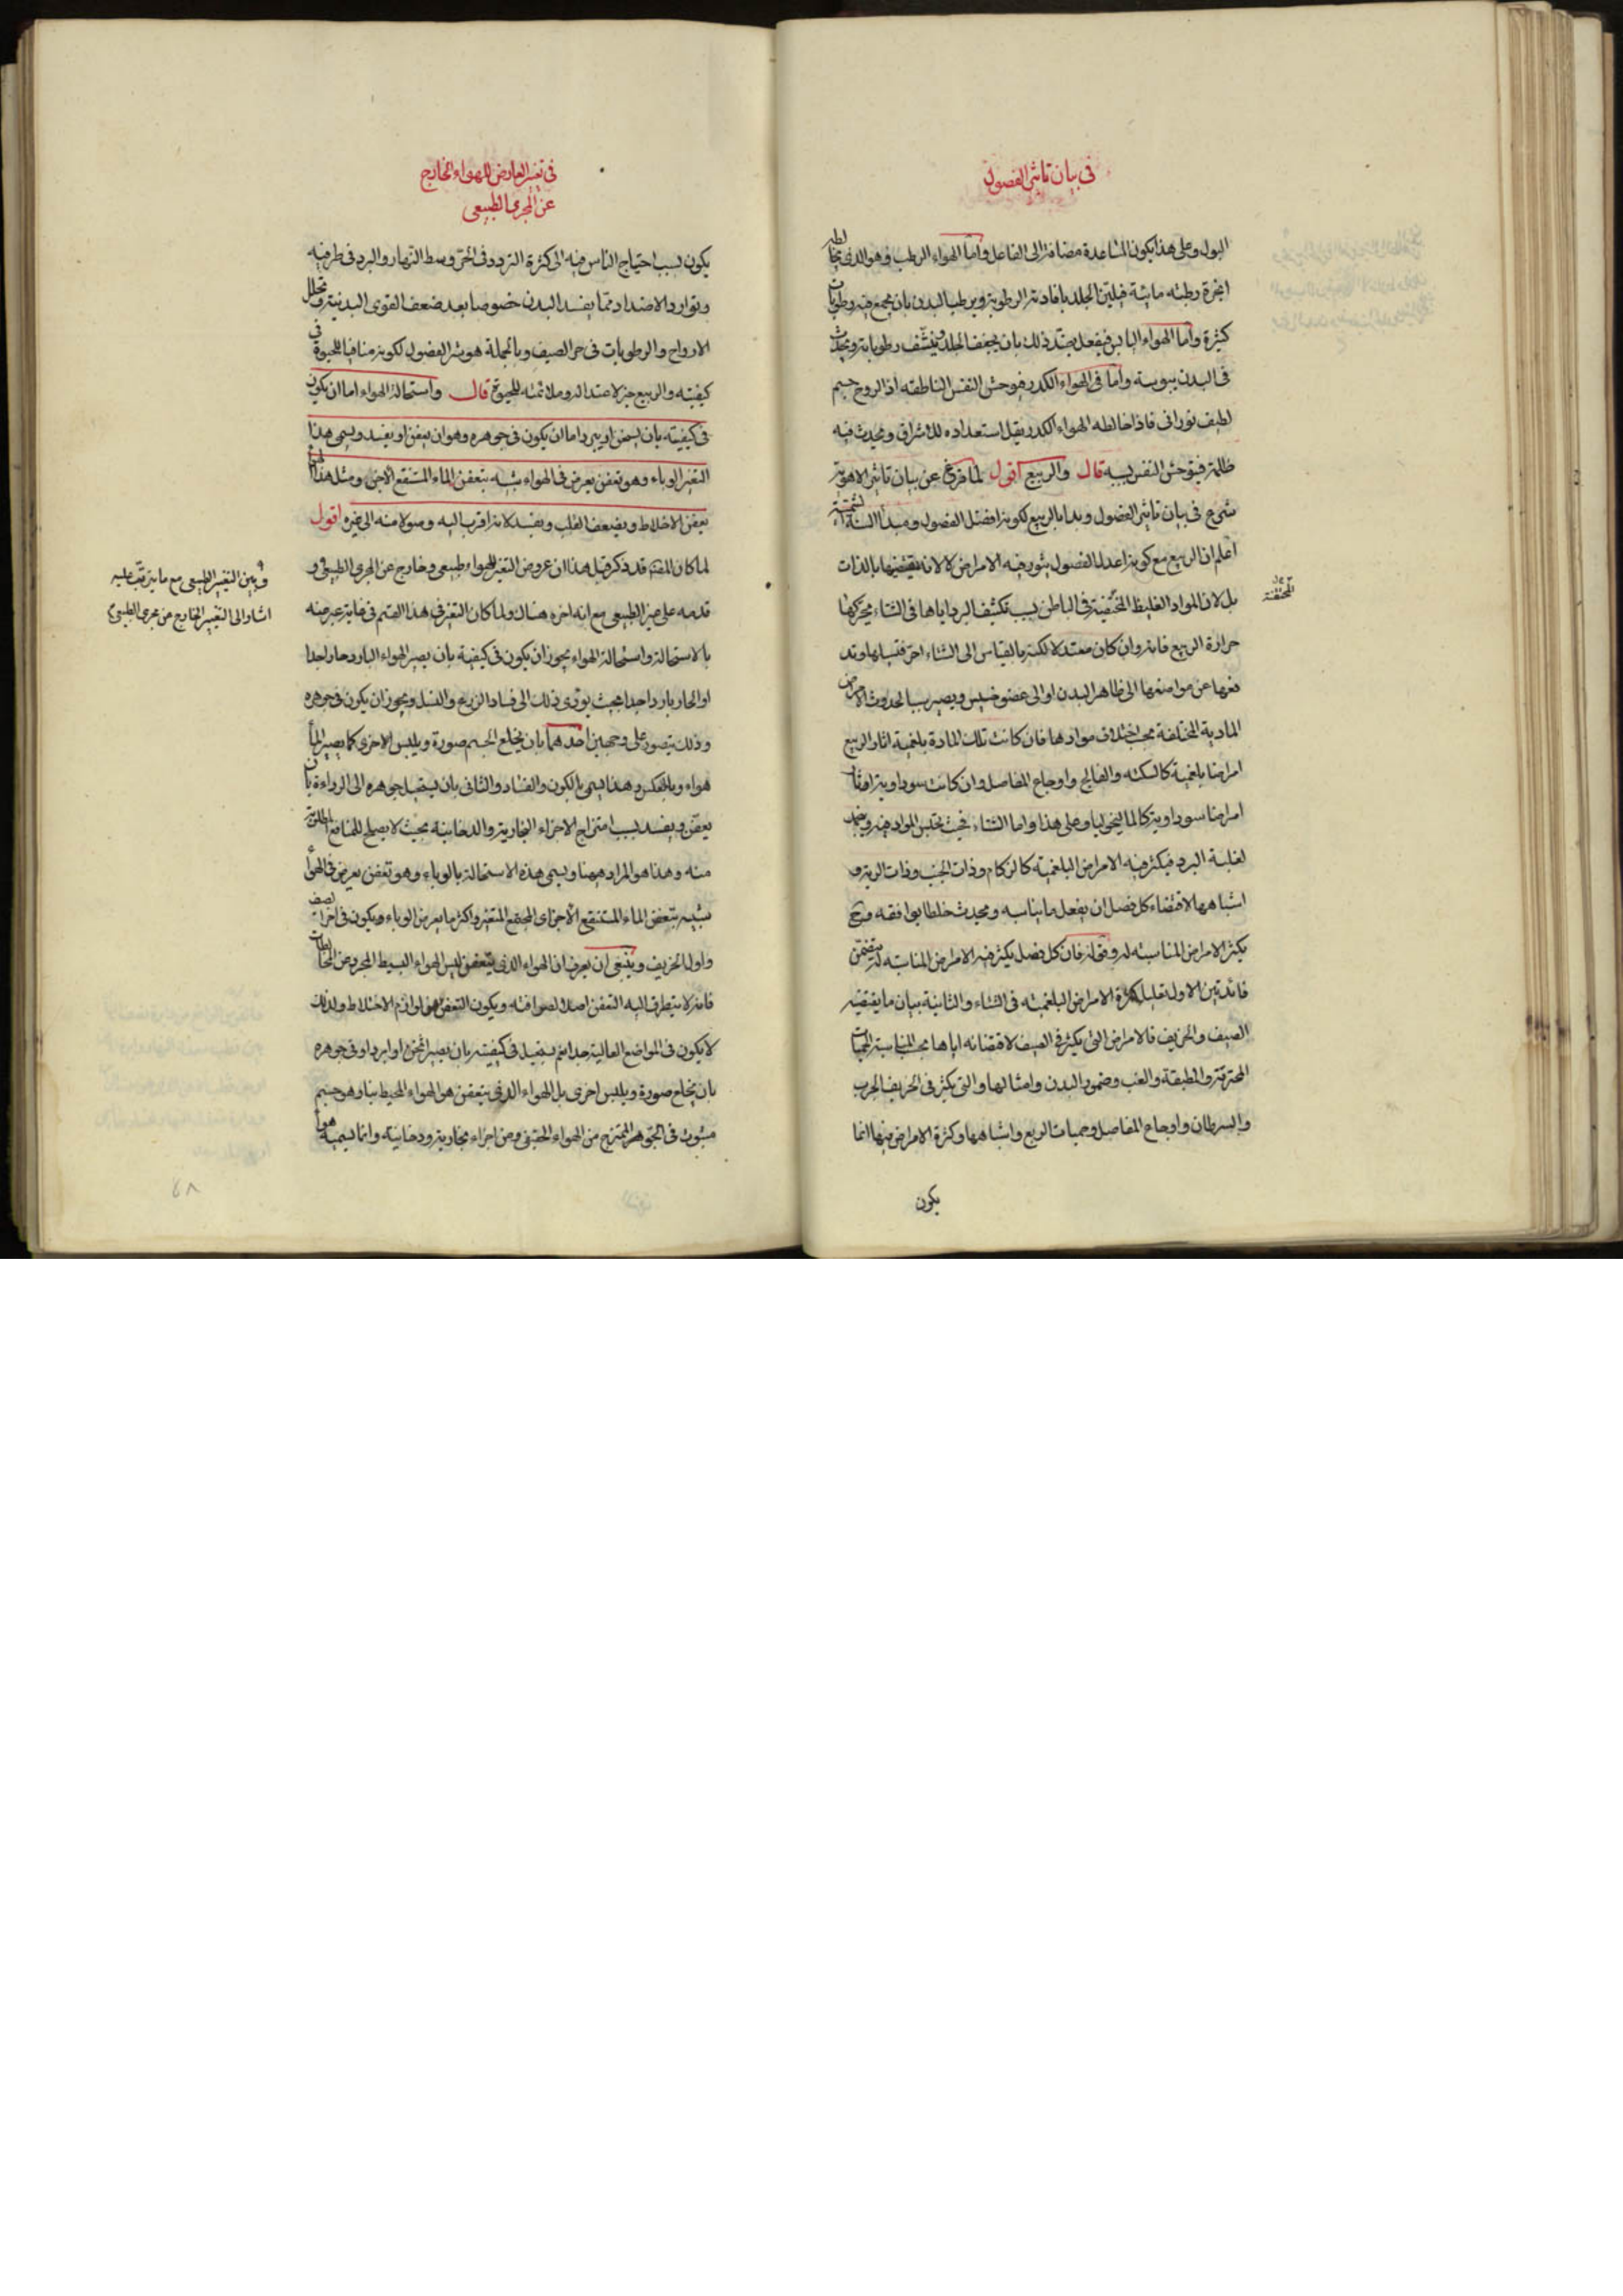 فى بيان تاثير الفصول
البول وعلى هذا يكون المساعدة مضافة الى الفاعل واما الهواء الرطب وهو الذى يخالطه
ابخرة رطبة مائية فيلين الجلد بافادته الرطوبة ويرطب البدن بان يجمع فيه رطوبات
كثيرة واما الهواء اليابس فيفعل بضد ذلك بان يجفف الجلد وينشف رطوباته ويحدث
فى البدن يبوسة واما فى الهواء الكدر فيوحش النفس الناطقه اذ الروح جسم
لطيف نورانى فاذا خالطه الهواء الكدر يقل استعداده للاشراق ويحدث فيه
ظلمة فيتوحش النفس بسببه قال والربيع اقول لما فرغ عن بيان تاثير الاهوية
شرع فى بيان تاثير الفصول وبدا بالربيع لكونه افضل الفصول ومبدا السنة
اعلم ان الربيع مع كونه اعدل الفصول يثور فيه الامراض لا لانه يقتضيها بالذات
بل لان المواد الغليظ المختفية فى الباطن بسبب تكثيف البرد اياها فى الشاء يحركها
المحتقنة
حرارة الربيع فانه وان كان معتدلا لكنه بالقياس الى الشتاء احر فتسيلها وتد
فعها عن مواضعها الى ظاهر البدن او الى عضو خسيس ويصير سببا لحدوث الامراض
المادية المختلفة بحسب اختلاف موادها فان كانت تلك المادة بلغمية اثار الربيع
امراضا بلغمية كالسكته والفالج واوجاع المفاصل وان كانت سوداوية اثار
امراضا سوداوية كالماليخوليا وعلى هذا واما الشتاء فحيث تحتبس المواد فيه ويجمد
لغلبة البرد فيكثر فيه الامراض البلغمية كالزكام وذات الجنب وذات الرية و
اشباهها لاقتضاء كل فصل ان يفعل ما يناسبه ويحدث خلطا يوافقه فح
يكثر الامراض المناسبته له وقوله فان كل فصل يكثر فيه الامراض المناسبه له يتضمن
فائدتين الاول تعليل كثرة الامراض البلغمية فى الشتاء والثانية بيان ما يقتضيه
الصيف والخريف فالامراض التى يكثر فى الصيف لاقتضائه اياها بحسب المناسبة الحميات
المحترقة والمطبقة والغب وضمور البدن وامثالها والتى يكثر فى الخريف الجرب
والسرطان واوجاع المفاصل وحميات الربع واشباهها وكثرة الامراض فيها انما
يكون
فى تغير العارض للهواء الخارج
عن المجرى الطبيعى
يكون بسبب احتياج الناس فيه الى كثرة التردد فى الحر وسط النهار والبرد فى طرفيه
وتوارد الاضداد مما يفسد البدن خصوصا بعد ضعف القوى البدنية وتحلل
الارواح والرطوبات فى حر الصيف وبالجملة هو شر الفصول لكونه منافيا للحيوة فى
كيفيته والربيع خير لاعتداله وملائمته للحيوة قال واستحالة الهواء اما ان يكون
فى كيفيته بان يسخن او يبرد اما ان يكون فى جوهره وهو ان يتعفن او يفسد ويسمى هذا
التغير الوباء وهو تعفن يعرض فى الهواء شبيه بتعفن الماء المستنقع الآجن ومثل هذا الهواء
يعفن الاخلاط ويضعف القلب ويفسد لانه اقرب اليه وصولا منه الى غيره اقول
لما كان المصنف قد ذكر قبل هذا ان عروض التغير للهواء طبيعى وخارج عن المجرى الطبيعى و
وبين التغيير الطبيعى مع ما يترتب عليه
اشار الى التغيير الخارج عن مجرى الطبيعى
قدمه على غير الطبيعى مع انه اخره هناك ولما كان التغير فى هذا القسم فى غايته عبر عنه
بالاستحالة واستحالة الهواء يجوز ان يكون فى كيفية بان يصير الهواء البارد حارا جدا
او الحار باردا جدا بحيث يؤدى ذلك الى فساد الزرع والنسل ويجوز ان يكون فى جوهره
وذلك يتصور على وجهين احدهما بان يخلع الجسم صورة ويلبس الاخرى كما يصير الماء
هواء وبالعكس وهذا يسمى بالكون والفساد والثانى بان يستحيل جوهره الى الرداءة بان
يعفن ويفسد بسبب امتزاج الاجزاء البخارية والدخانية بحيث لا يصلح للمنافع المطلوبة
منه وهذا هو المراد ههنا ويسمى هذه الاستحالة بالوباء وهو تعفن يعرض فى الهواء
شبيه بتعفن الماء المستنقع الآجن اى المجتمع المتغير واكثر ما يعرض الوباء ويكون فى اخر الصيف
واول الخريف وينبغى ان يعرف ان الهواء الذى يتعفن ليس الهواء البسيط المجرد عن المخالطات
فانه لا يتطرق اليه التعفن اصلا لصرافته ويكون التعفن من لوازم الاختلاط ولذلك
لا يكون فى المواضع العالية جدا نعم يستحيل فى كيفيته بان يصير اسخن او ابرد او فى جوهره
بان يخلع صورة ويلبس اخرى بل الهواء الذى يتعفن هو الهواء المحيط بنا وهو جسم
مبثوث فى الجو هو الممتزج من الهواء الحقيقى ومن اجزاء بخارية ودخانية وانما نسميه هواء
٤٨